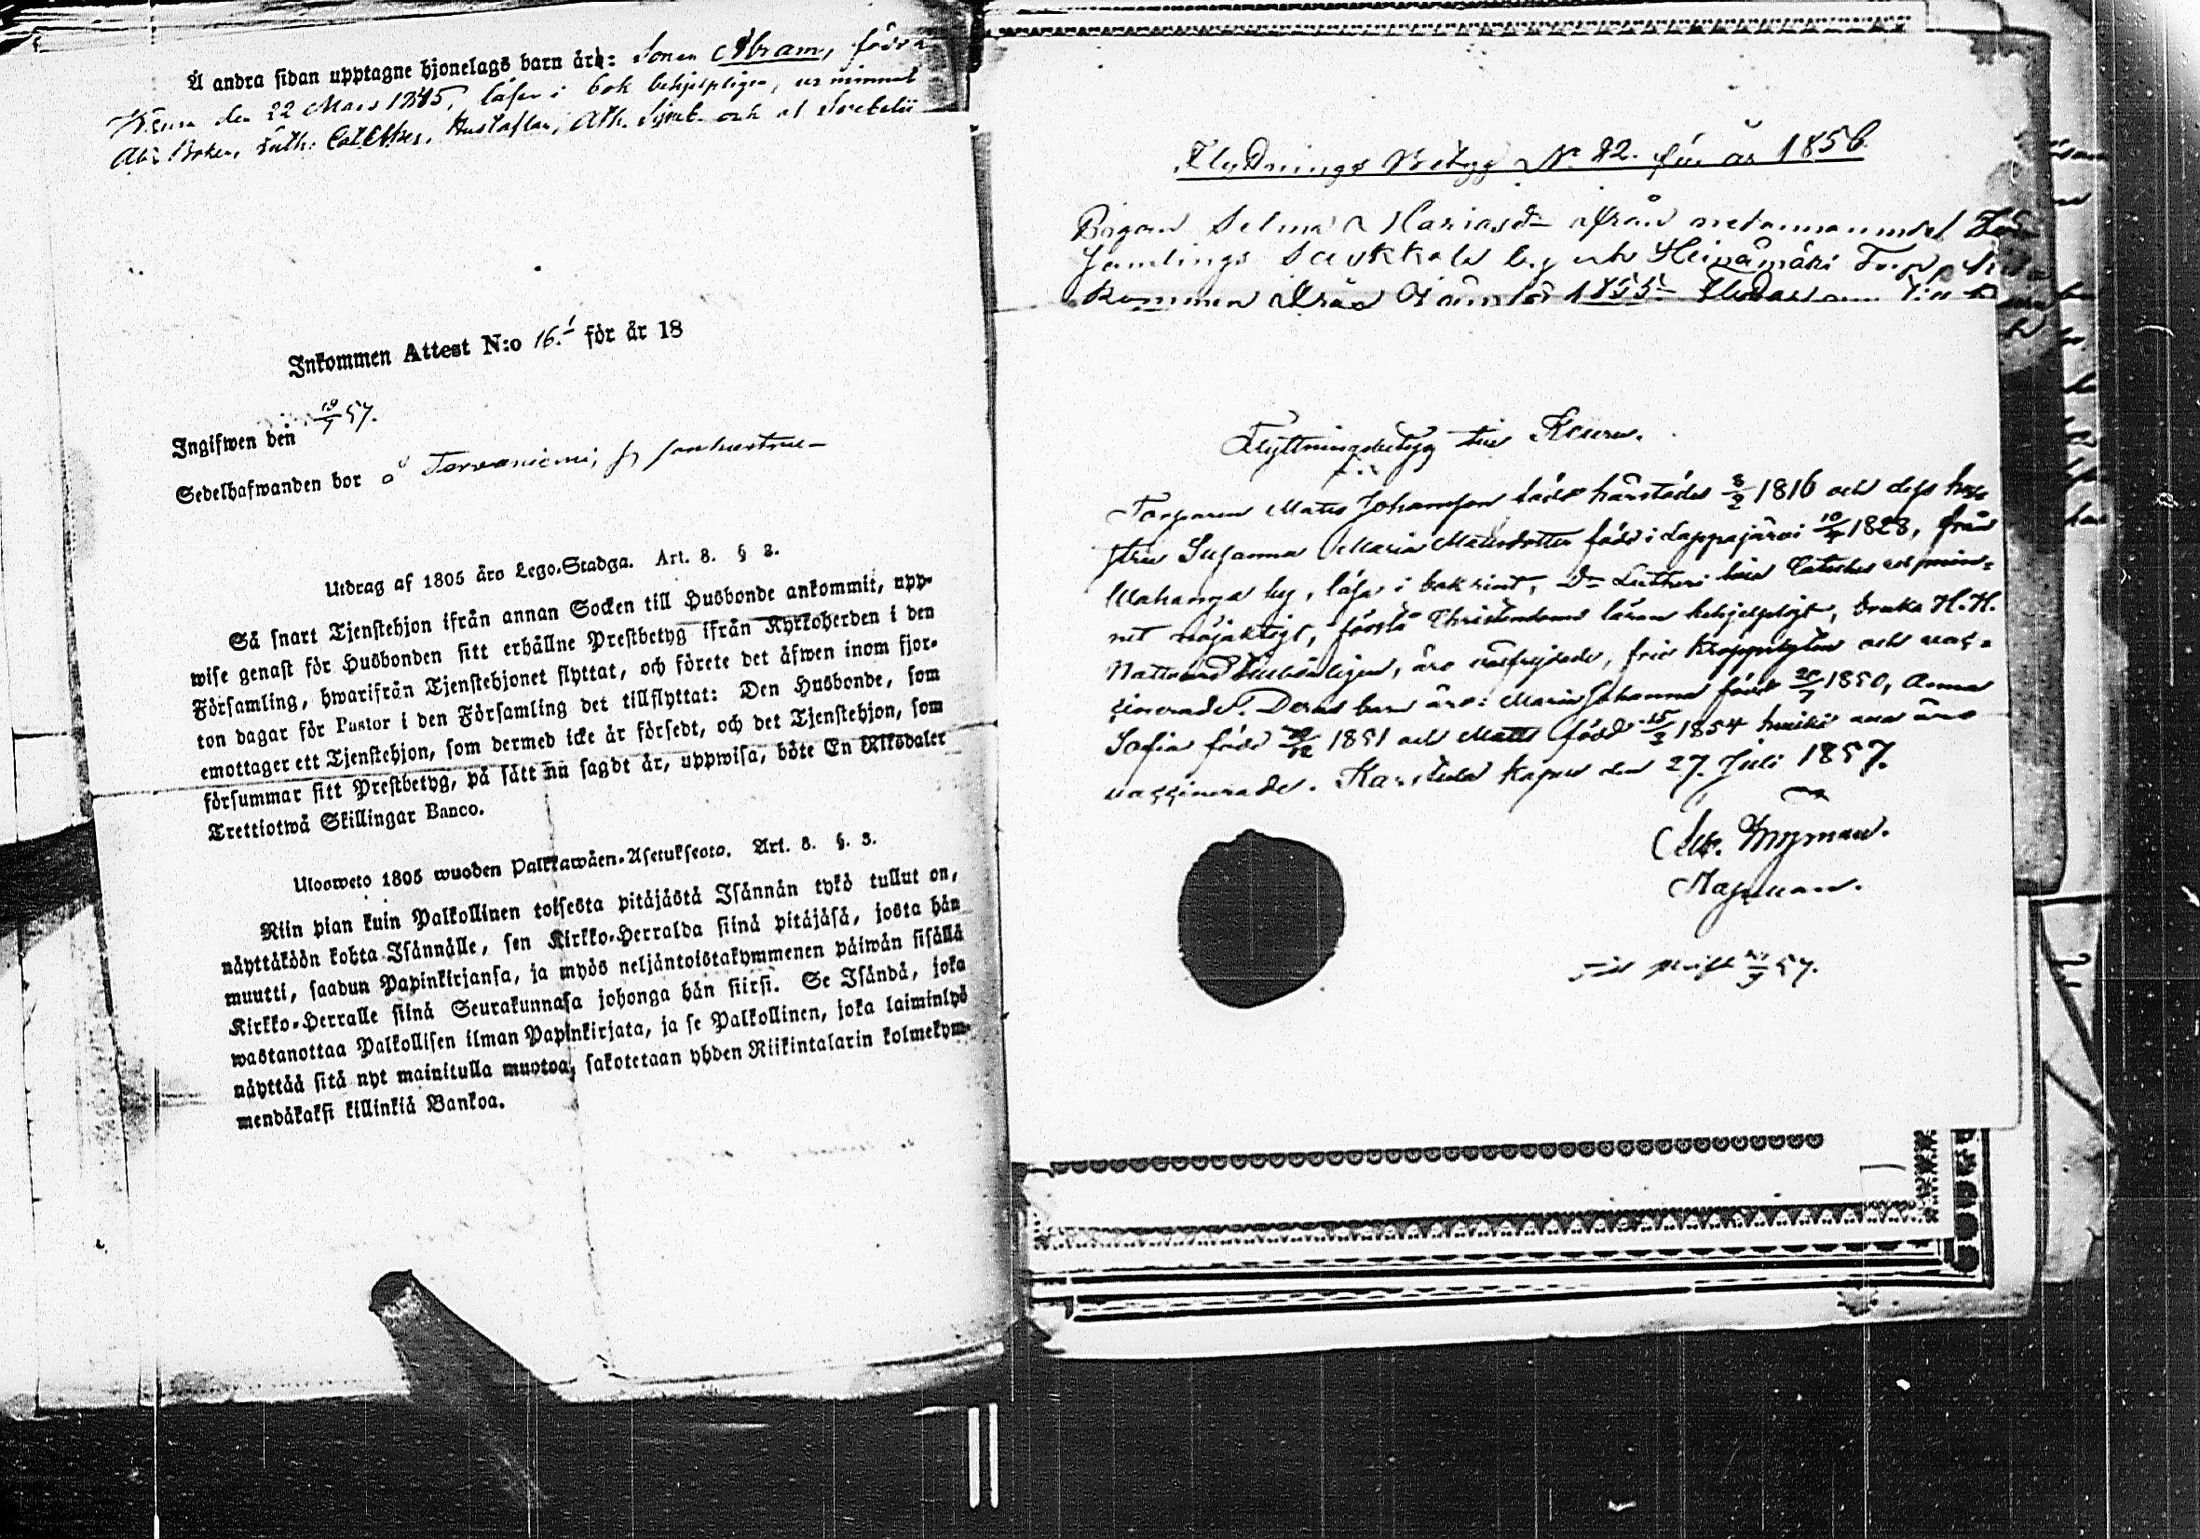 Å andra sidan upptagne hjonelags barn äro: Sonen Abram, född i
Keuru den 22 Mars 1845, läser i bok behjelpligen, ur minnet
Abc Boken, Luth: Cateches, Hustaflan, Ath. Symb. och
Inkommen Attest N:o 16. för år 18
Ingifwen den 19/7 57.
Sedelhafwanden bor å Terwaniemi,
Utdrag af 1805 års Lego-Stadga. Art. 8. § 3.
Så snart Tjenstehjon ifrån annan Socken till Husbonde ankommit, upp-
wise genast för Husbonden sitt erhållne Prestbetyg ifrån Kyrkoherden i den
Församling, hwarifrån Tjenstehjonet flyttat, och förete det äfwen inom fjor-
ton dagar för Pastor i den Församling det tillflyttat: Den Husbonde, som
emottager ett Tjenstehjon, som dermed icke är försedt, och det Tjenstehjon, som
försummar sitt Prestbetyg, på sätt nu sagdt är, uppwisa, böte En Riksdaler
Trettiotwå Skillingar Banco.
Ulosweto 1805 wuoden Palkkawäen-Asetuksesta. Art. 8. §. 3.
Niin pian kuin Palkollinen toisesta pitäjästä Isännän tykö tullut on,
näyttäköön kohta Isännälle, sen Kirkko-Herralda siinä pitäjäsä, josta hän
muutti, saadun Papinkirjansa, ja myös neljäntoistakymmenen päiwän sisällä
Kirkko-Herralle siinä Seurakunnasa johonga hän siirsi. Se Isändä, joka
wastanottaa Palkollisen ilman Papinkirjata, ja se Palkollinen, joka laiminlyö
näyttää sitä nyt mainitulla muotoa, sakotetaan yhden Riikintalarin kolmekym-
mendäkaksi killinkiä Bankoa.
Flyttnings Betyg N:o 22. för år 1856
Pigan Selma Mariasdr ifrån nedannemnde För
samlings Saukkola by och Heinämäki Torp, hit
kommen ifrån 1855
Flyttningsbetyg till Keuru.
för
Torparen Matts Johansson född härstädes 8/2 1816 och dess hu-
stru Susanna Maria Mattsdotter född i Lappajärvi 10/4 1828, från
Wahanga by, läsa i bok rint, Dr Lutheri lilla Cateches ur min-
net nöjaktigt, förstå Christendoms läran behjelpligt, bruka H. H.
Nattvard ärligen, äro välfrejdade, fria kroppslyten och vac-
cinerade. Deras barn äro: Maria Johanna född 24/7 1850, Anna
Sofia född 1851 och Matts född 15/3 1854 hvilka ock äro
vaccinerade. Karstula kapell den 27. Juli 1857.
Kapellan.
57.